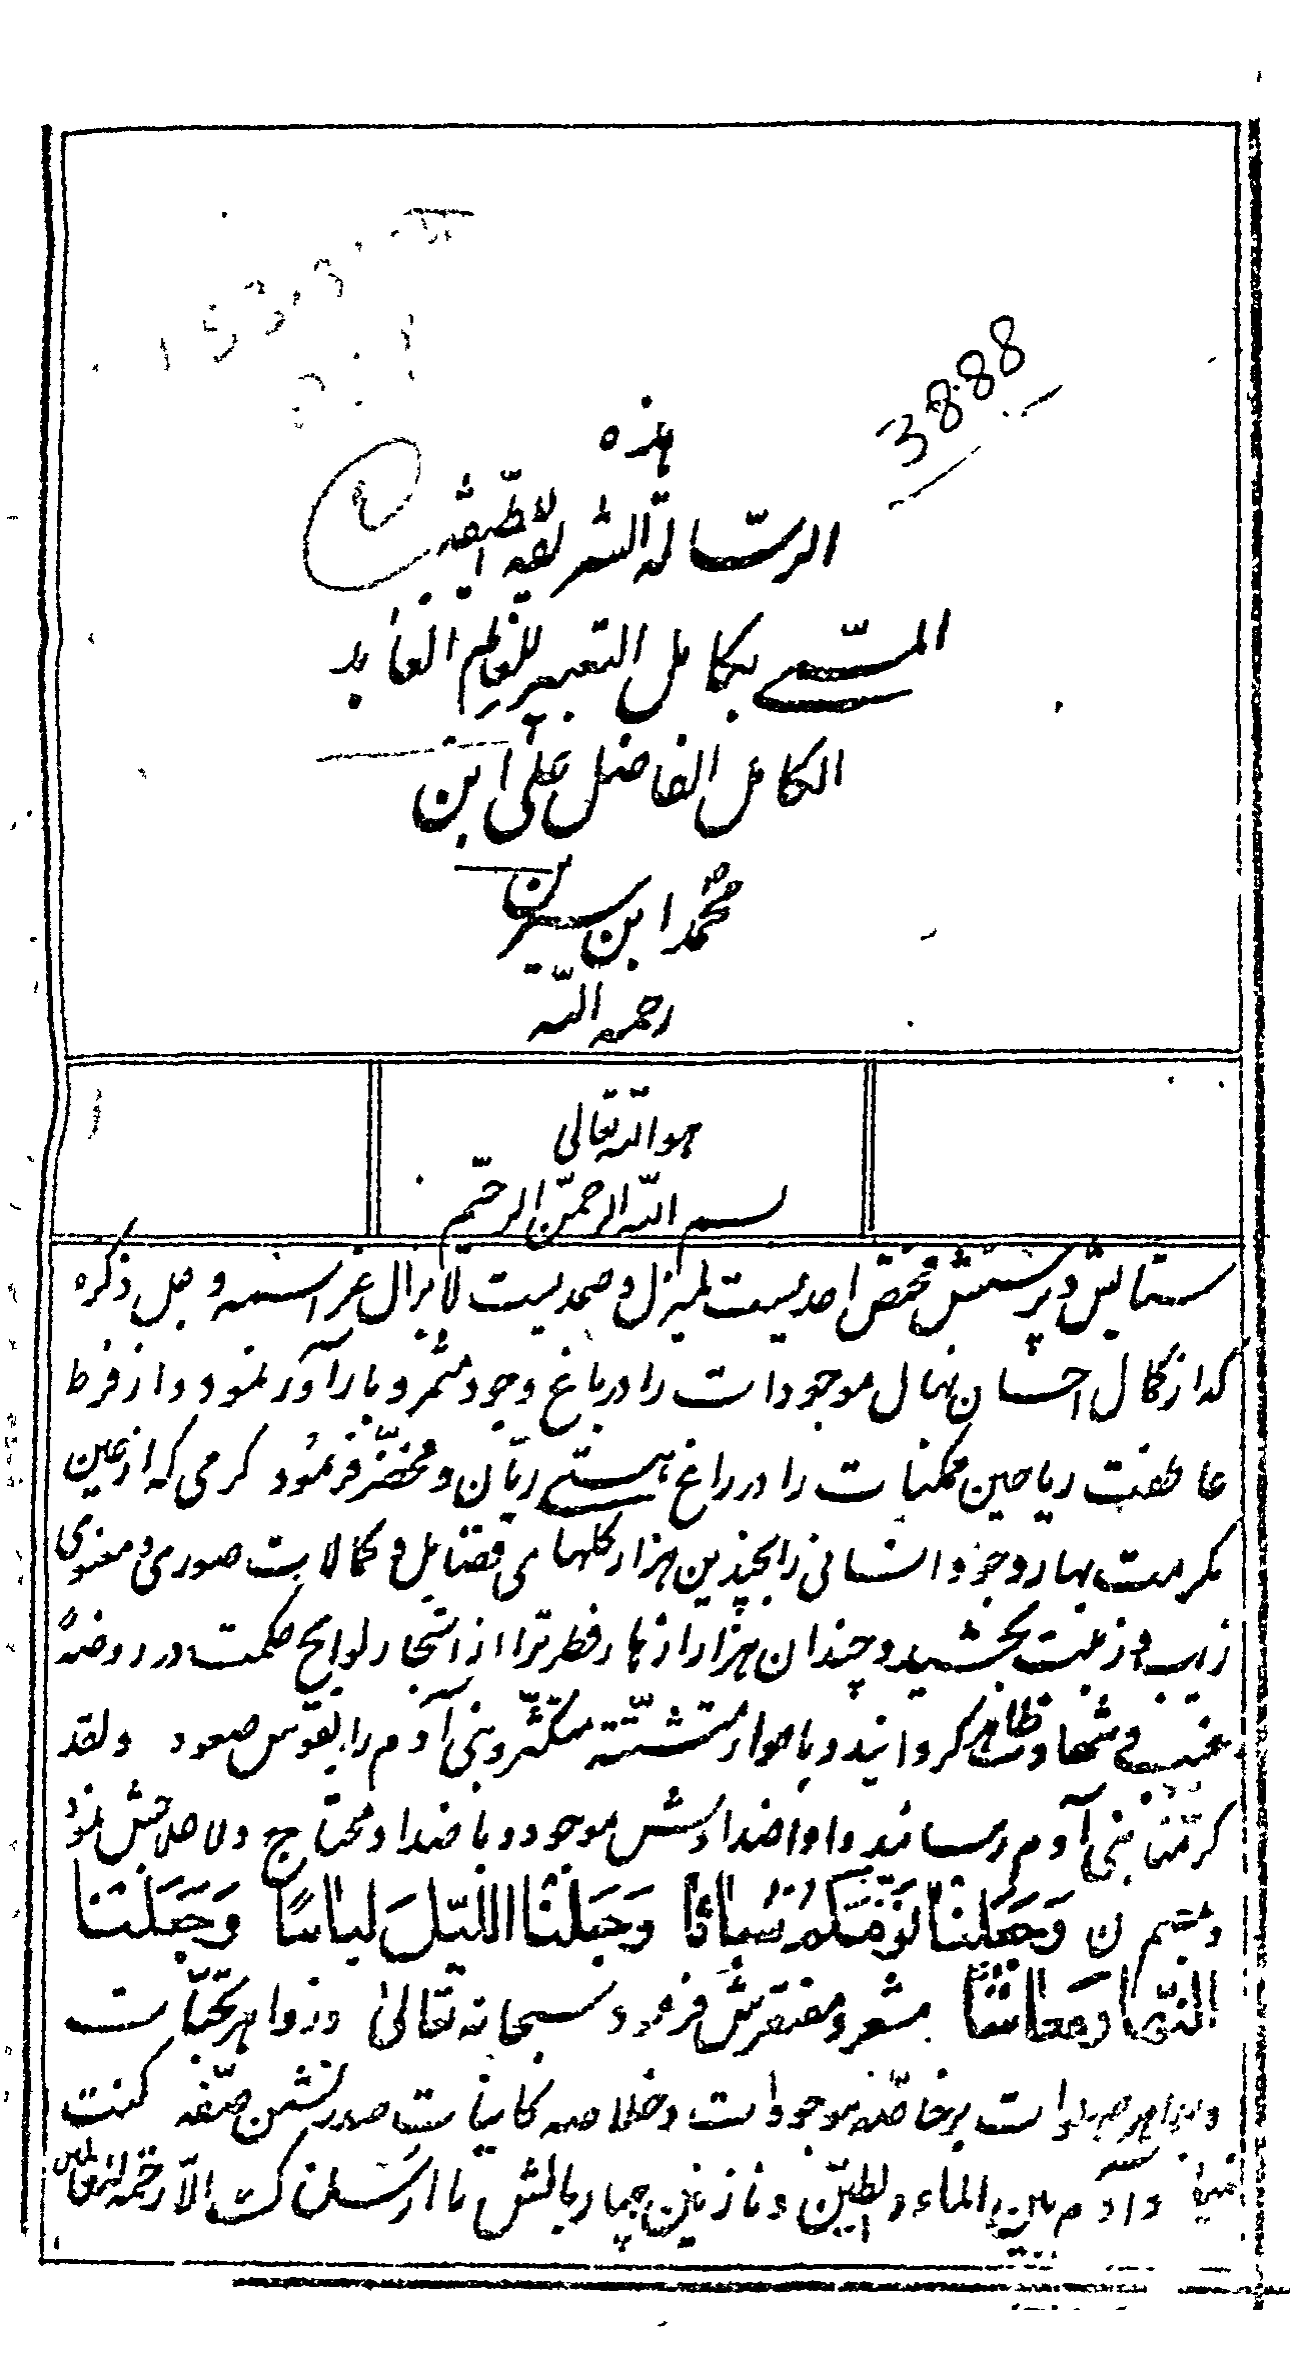 3888
هذه
الرسالة الشريفة اللطيفة
المسمى بكامل التعبير للعالم العابد
الكامل الفاضل على ابن
محمد ابن سيرين
رحمه الله
هو الله تعالى
بسم الله الرحمن الرحیم
ستایش و پرستش مختص احدیست لمیزل و صمدیست لایزال عز اسمه و جل ذکره
که از کمال احسان نهال موجودات را در باغ وجود مثمر و بارآور نمود و از فرط
عاطفت ریاحین ممکنات را در راغ هستی ریّان و مخضّر فرمود کرمی که از عین
مکرمت بهار وجود انسانی را بچندین هزار گلهای فضایل و کمالات صوری و معنوی
زیب و زینت بخشید و چندان هزار ازهار فطرت را از اشجار لوایح حکمت در روضهٔ
غیب و شهادت ظاهر گردانید و با مواد متشتّته متکثّره بنی آدم را بقوس صعود ولقد
کرّمنا بنی آدم رسانید و او را اضدادش موجود و باضداد محتاج ولاصلاحش نمود
وَجَعَلْنَا نَوْمَكُمْ سُبَاتًا وَجَعَلْنَا اللَّيْلَ لِبَاسًا وَجَعَلْنَا
النَّهَارَ مَعَاشًا مشعر و مفتقرش فرمود سبحانه تعالی و زواهر تحیّات
و جواهر صلوات بر خاصهٔ موجودات و خلاصه کاینات صدرنشین صفّه کنت
نبیا و آدم بین الماء والطین و نازنین چهار بالش ما ارسلناک الا رحمة للعالمین